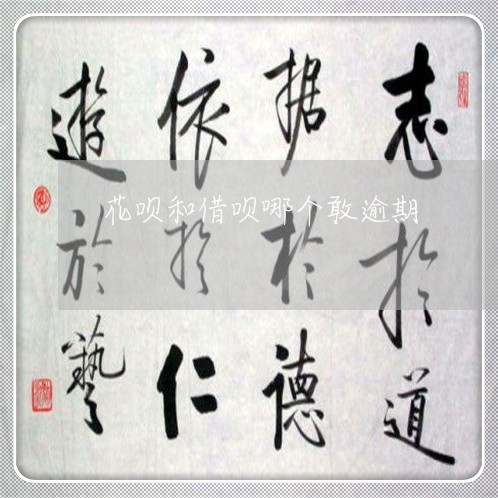 志於道
据於德
依於仁
遊於藝
花呗和借呗哪个敢逾期